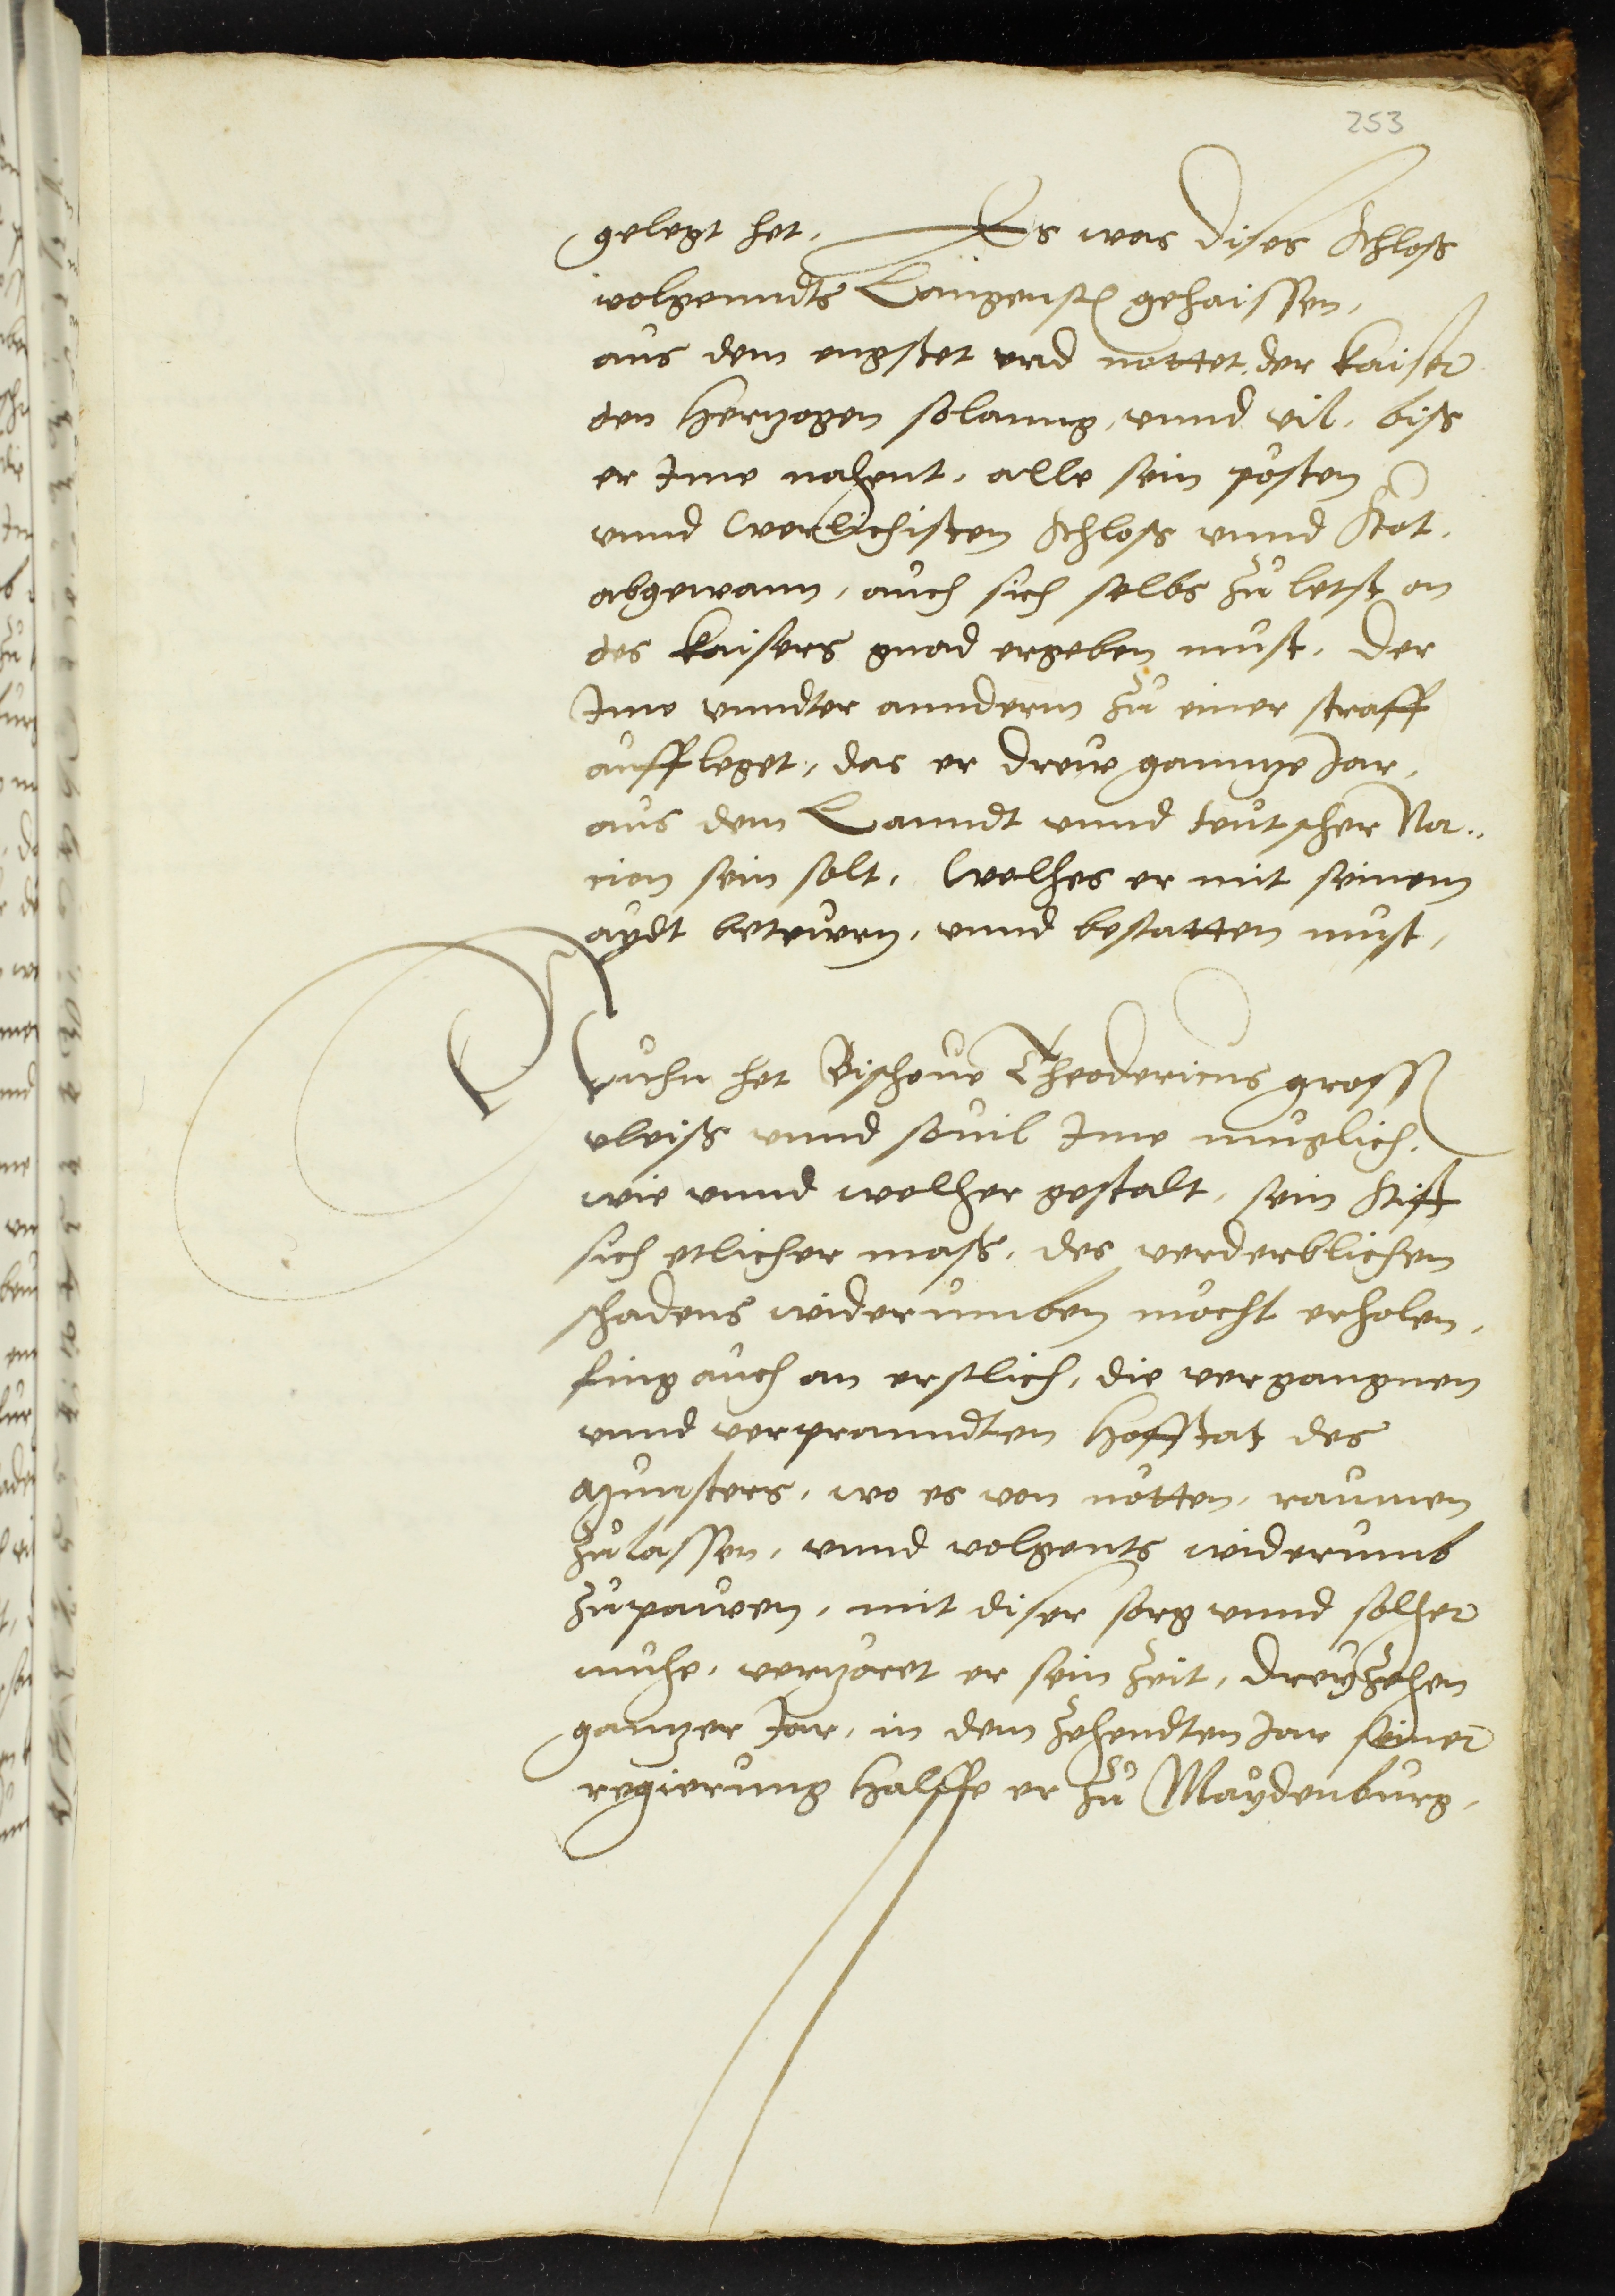 253
gelegt het. Es was dises Schloß
volgenndts Langenstein gehaissen,
aus dem engstet vnd nottet der kaiser
den Hertzogen solanng, vnnd vil, biß
er Ime nahent, alle sein posten
vnnd Werlichisten Schloß vnnd Stat,
abgewann, auch sich selbs zu letst an
des kaisers gnad ergeben must, Der
Ime vnndter annderm zu einer straff
auffleget, das er drew ganntze Jar,
aus dem Lanndt vnnd teutscher Na=
cion sein solt, Welhes er mit seinem
aydt betewrn, vnnd bestatten must,
Nuhn het Bischoue Theodericus gross
vleiß vnnd souil Ime muglich,
wie vnnd welher gestalt, sein Stifft
sich etlicher maß, des verderblichen
schadens widerumben mocht erholen,
fing auch an erstlich, die vergangnen
vnnd verpranndten Hoffstat des
Munsters, wo es von notten, raumen
zulassen, vnnd volgents widerumb
zupawen, mit diser sorg vnnd solher
muhe, verzoret er sein zeit, dreyzehen
gantzer Jar, in dem zehendten Jar seiner
regierung halffe er zu Maydenburg,